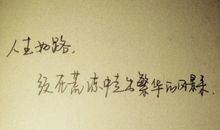 人生如路，
须在荒凉中走出繁华的风景来。